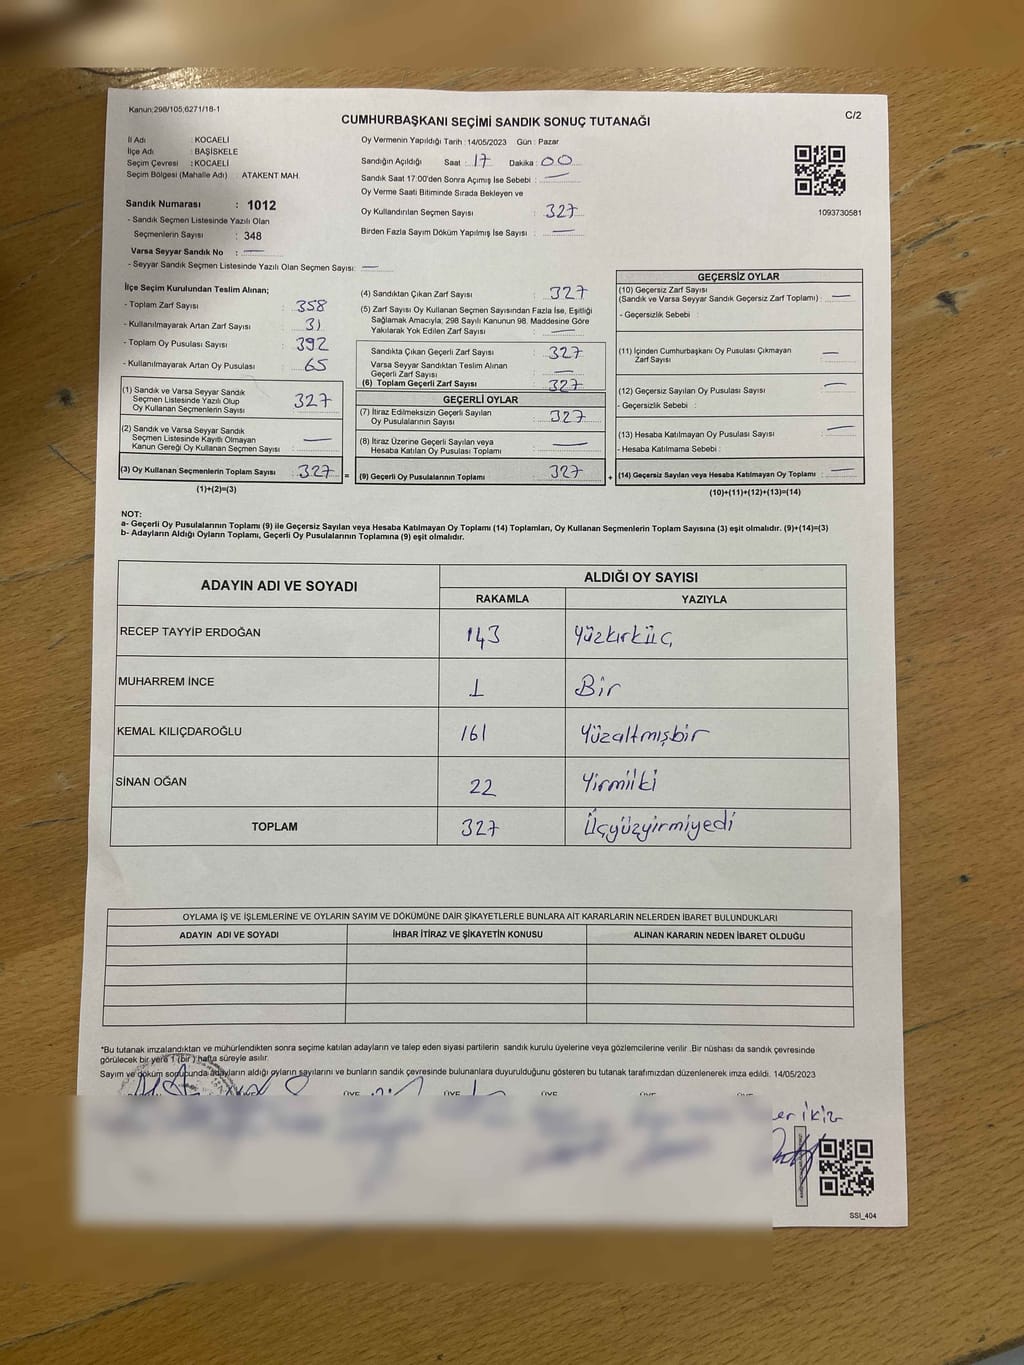 Kanun:298/105,6271/18-1
C/2
CUMHURBAŞKANI SEÇİMİ SANDIK SONUÇ TUTANAĞI
İl Adı : KOCAELİ
İlçe Adı : BAŞİSKELE
Seçim Çevresi : KOCAELİ
Seçim Bölgesi (Mahalle Adı) : ATAKENT MAH.
Sandık Numarası : 1012
- Sandık Seçmen Listesinde Yazılı Olan
Seçmenlerin Sayısı : 348
Varsa Seyyar Sandık No : —
- Seyyar Sandık Seçmen Listesinde Yazılı Olan Seçmen Sayısı: —
Oy Vermenin Yapıldığı Tarih : 14/05/2023 Gün : Pazar
Sandığın Açıldığı Saat : 17 Dakika : 00
Sandık Saat 17:00'den Sonra Açımış İse Sebebi : —
Oy Verme Saati Bitiminde Sırada Bekleyen ve
Oy Kullandırılan Seçmen Sayısı : 327
Birden Fazla Sayım Döküm Yapılmış İse Sayısı : —
1093730581
İlçe Seçim Kurulundan Teslim Alınan;
- Toplam Zarf Sayısı : 358
- Kullanılmayarak Artan Zarf Sayısı : 31
- Toplam Oy Pusulası Sayısı : 392
- Kullanılmayarak Artan Oy Pusulası : 65
(1) Sandık ve Varsa Seyyar Sandık
Seçmen Listesinde Yazılı Olup
Oy Kullanan Seçmenlerin Sayısı : 327
(2) Sandık ve Varsa Seyyar Sandık
Seçmen Listesinde Kayıtlı Olmayan
Kanun Gereği Oy Kullanan Seçmen Sayısı : —
(3) Oy Kullanan Seçmenlerin Toplam Sayısı : 327 =
(1)+(2)=(3)
(4) Sandıktan Çıkan Zarf Sayısı : 327
(5) Zarf Sayısı Oy Kullanan Seçmen Sayısından Fazla İse, Eşitliği
Sağlamak Amacıyla, 298 Sayılı Kanunun 98. Maddesine Göre
Yakılarak Yok Edilen Zarf Sayısı : —
Sandıkta Çıkan Geçerli Zarf Sayısı : 327
Varsa Seyyar Sandıktan Teslim Alınan
Geçerli Zarf Sayısı : —
(6) Toplam Geçerli Zarf Sayısı : 327
GEÇERLİ OYLAR
(7) İtiraz Edilmeksizin Geçerli Sayılan
Oy Pusulalarının Sayısı : 327
(8) İtiraz Üzerine Geçerli Sayılan veya
Hesaba Katılan Oy Pusulası Toplamı : —
(9) Geçerli Oy Pusulalarının Toplamı : 327 +
GEÇERSİZ OYLAR
(10) Geçersiz Zarf Sayısı
(Sandık ve Varsa Seyyar Sandık Geçersiz Zarf Toplamı) : —
- Geçersizlik Sebebi :
(11) İçinden Cumhurbaşkanı Oy Pusulası Çıkmayan
Zarf Sayısı : —
(12) Geçersiz Sayılan Oy Pusulası Sayısı : —
- Geçersizlik Sebebi :
(13) Hesaba Katılmayan Oy Pusulası Sayısı : —
- Hesaba Katılmama Sebebi :
(14) Geçersiz Sayılan veya Hesaba Katılmayan Oy Toplamı : —
(10)+(11)+(12)+(13)=(14)
NOT:
a- Geçerli Oy Pusulalarının Toplamı (9) ile Geçersiz Sayılan veya Hesaba Katılmayan Oy Toplamı (14) Toplamları, Oy Kullanan Seçmenlerin Toplam Sayısına (3) eşit olmalıdır. (9)+(14)=(3)
b- Adayların Aldığı Oyların Toplamı, Geçerli Oy Pusulalarının Toplamına (9) eşit olmalıdır.
ADAYIN ADI VE SOYADI
ALDIĞI OY SAYISI
RAKAMLA YAZIYLA
RECEP TAYYİP ERDOĞAN 143 Yüzkırküç
MUHARREM İNCE 1 Bir
KEMAL KILIÇDAROĞLU 161 Yüzaltmışbir
SİNAN OĞAN 22 Yirmiiki
TOPLAM 327 Üçyüzyirmiyedi
OYLAMA İŞ VE İŞLEMLERİNE VE OYLARIN SAYIM VE DÖKÜMÜNE DAİR ŞİKAYETLERLE BUNLARA AİT KARARLARIN NELERDEN İBARET BULUNDUKLARI
ADAYIN ADI VE SOYADI İHBAR İTİRAZ VE ŞİKAYETİN KONUSU ALINAN KARARIN NEDEN İBARET OLDUĞU
*Bu tutanak imzalandıktan ve mühürlendikten sonra seçime katılan adayların ve talep eden siyasi partilerin sandık kurulu üyelerine veya gözlemcilerine verilir .Bir nüshası da sandık çevresinde
görülecek bir yere 1 (bir ) hafta süreyle asılır.
Sayım ve döküm sonucunda adayların aldığı oyların sayılarını ve bunların sandık çevresinde bulunanlara duyurulduğunu gösteren bu tutanak tarafımızdan düzenlenerek imza edildi. 14/05/2023
ÜYE ÜYE ÜYE ÜYE ÜYE
ikiz
SSI_404